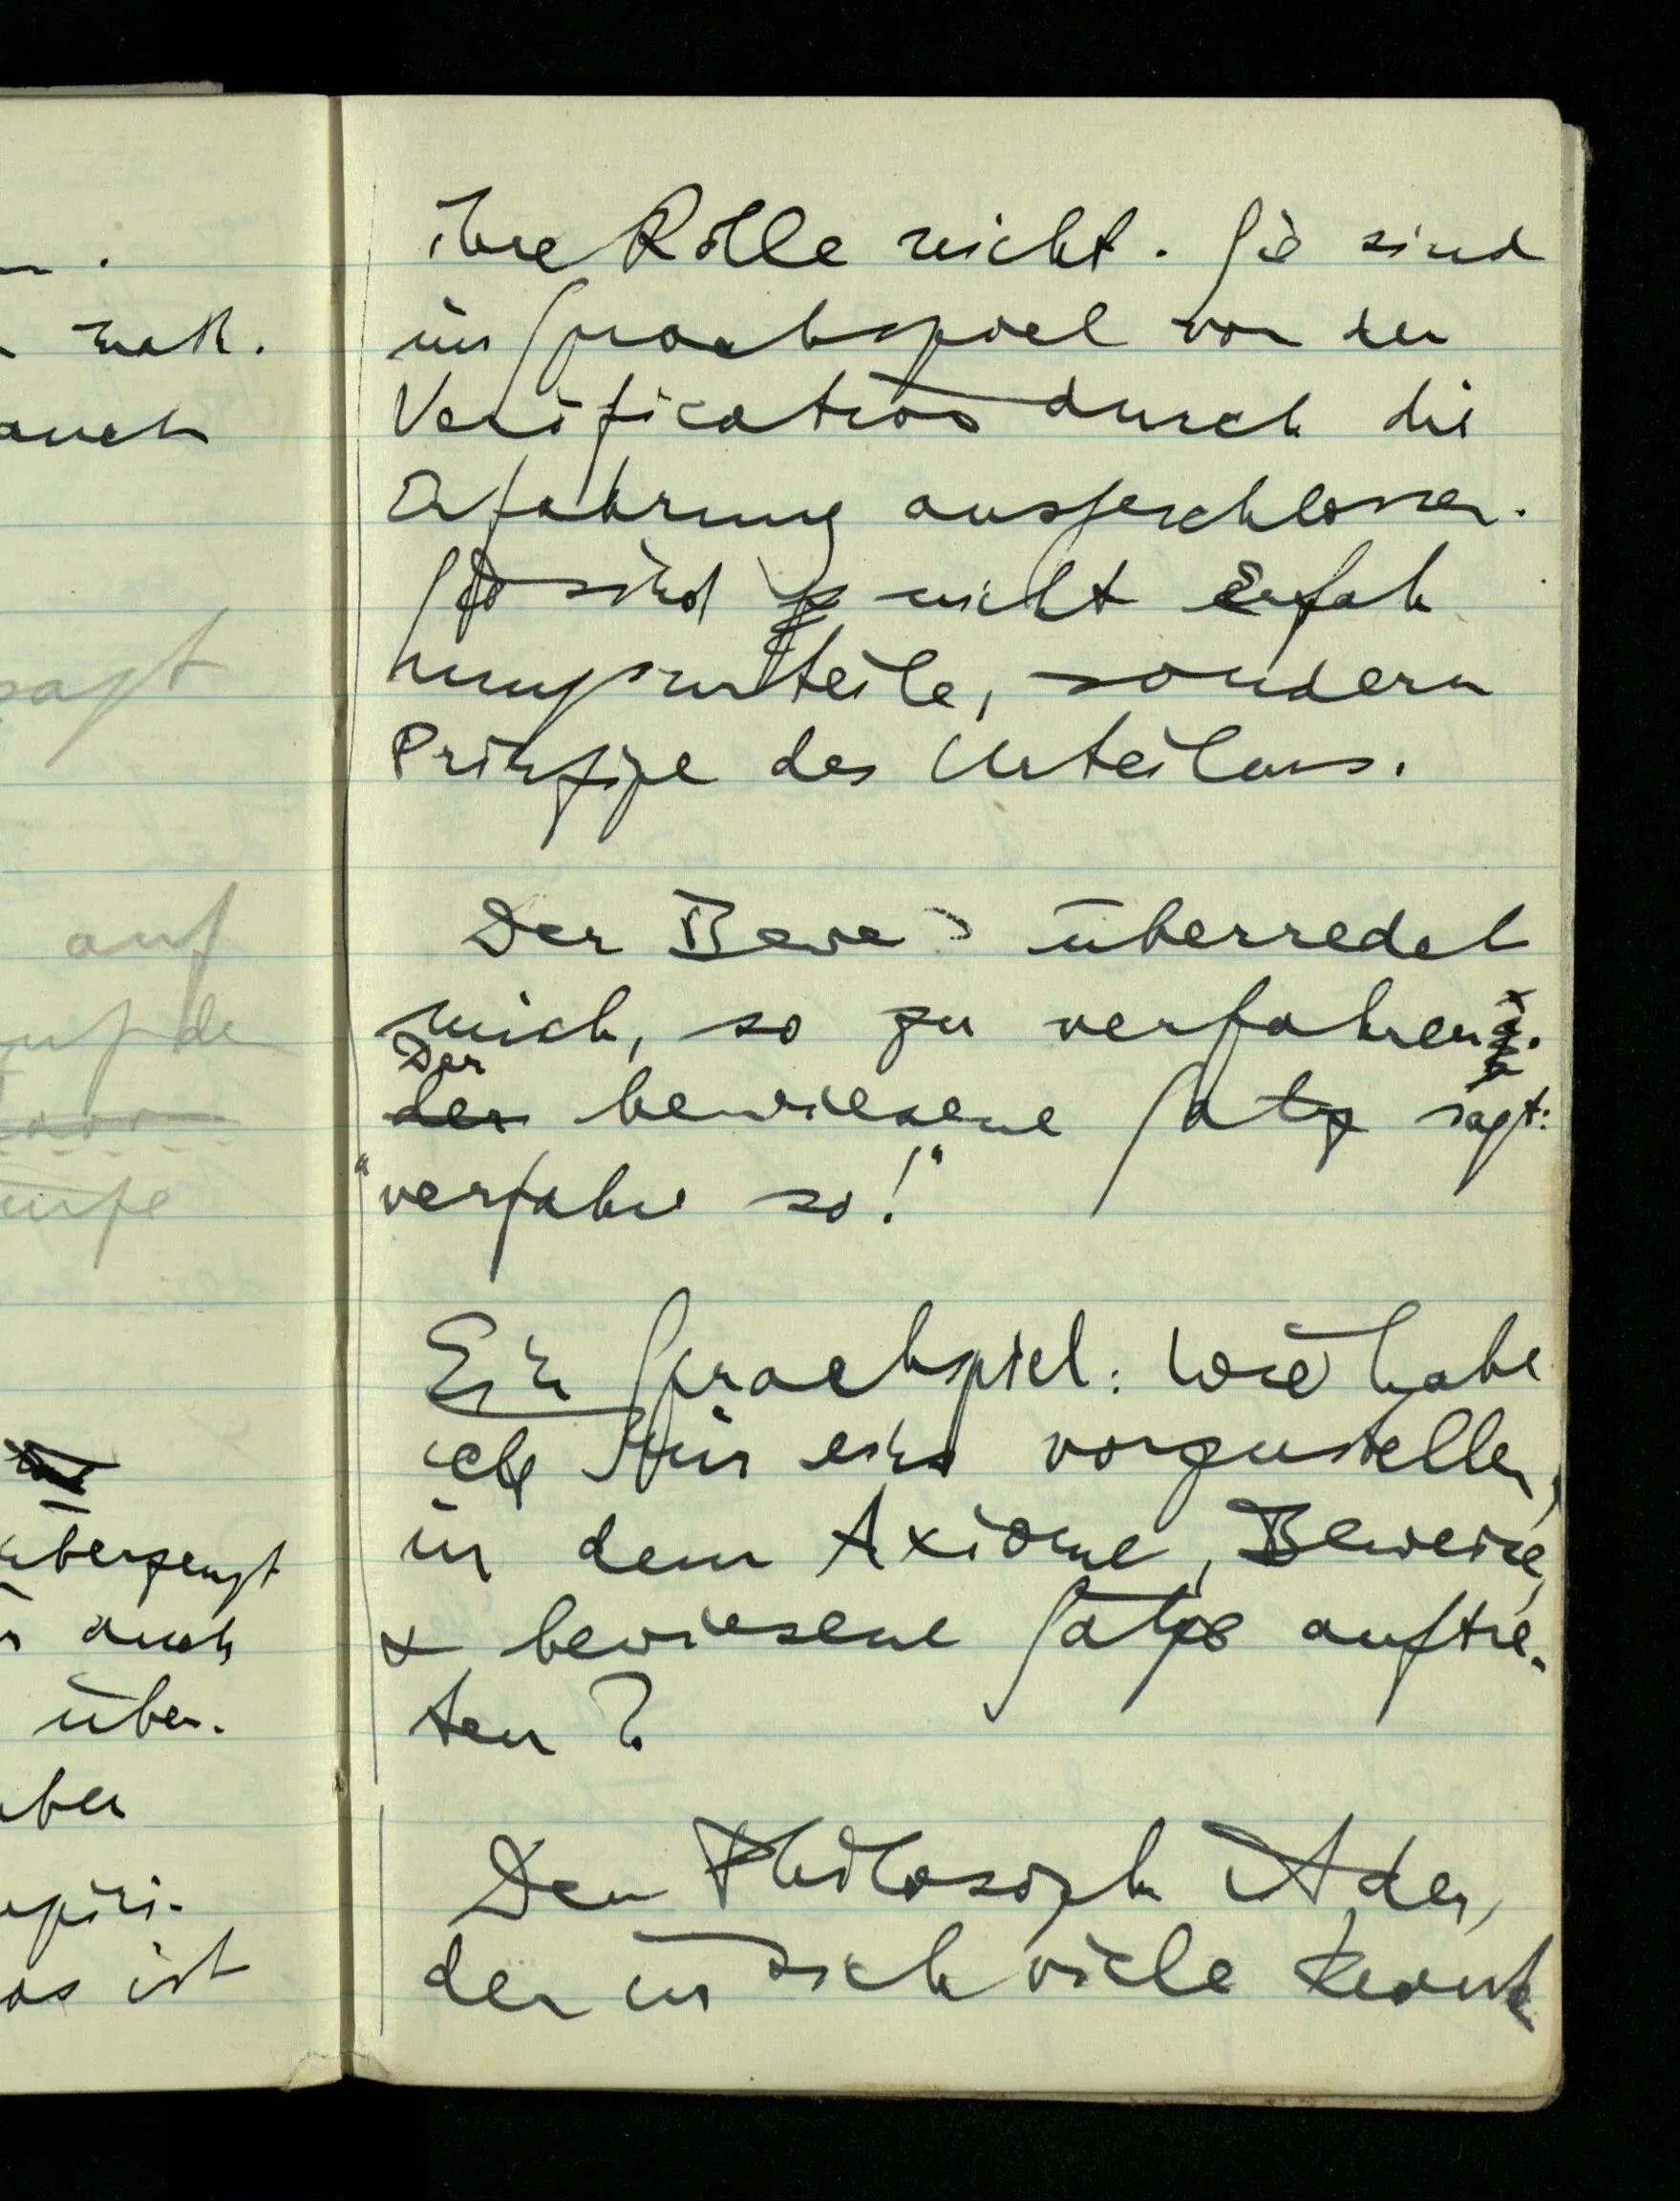 n.
math.
auch
sagt
auf
auf de
überzeugt
auch
über-
aber
empiri-
as ist
ihre Rolle nicht. Sie sind
im Sprachspiel von der
Verification durch die
Erfahrung ausgeschlossen.
Sie sind nicht Erfah
rungsurteile, sondern
Prinzipe des Urteilens.
Der Beweis überredet
mich, so zu verfahren.
Der
der bewiesene Satz sagt:
"verfahre so!"
Ein Sprachspiel: Wie habe
ich mir eins vorzustellen,
in dem Axiome, Beweise,
& bewiesene Sätze auftre-
ten?
Den Philosoph
der in sich viele